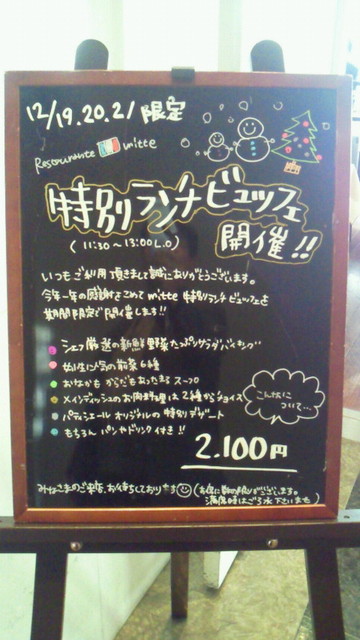 12/19.20.21 限定
Restaurante mitte
特別ランチビュッフェ
開催!!
(11:30~13:00L.O)
いつもご利用頂きまして誠にありがとうございます。
今年一年の感謝をこめてmitte 特別ランチビュッフェを
期間限定で開催します!!
シェフ厳選の新鮮野菜たっぷりサラダバイキング
女性に人気の前菜6種
おなかも からだもあったまる スープ
メインディッシュのお肉料理は2種からチョイス
パティシエール オリジナルの特別デザート
もちろん パンやドリンク付き!!
こんなに
ついて…
2.100円
みなさまのご来店、お待ちしております
(お席に限りがございます。
満席時はご了承下さいませ)